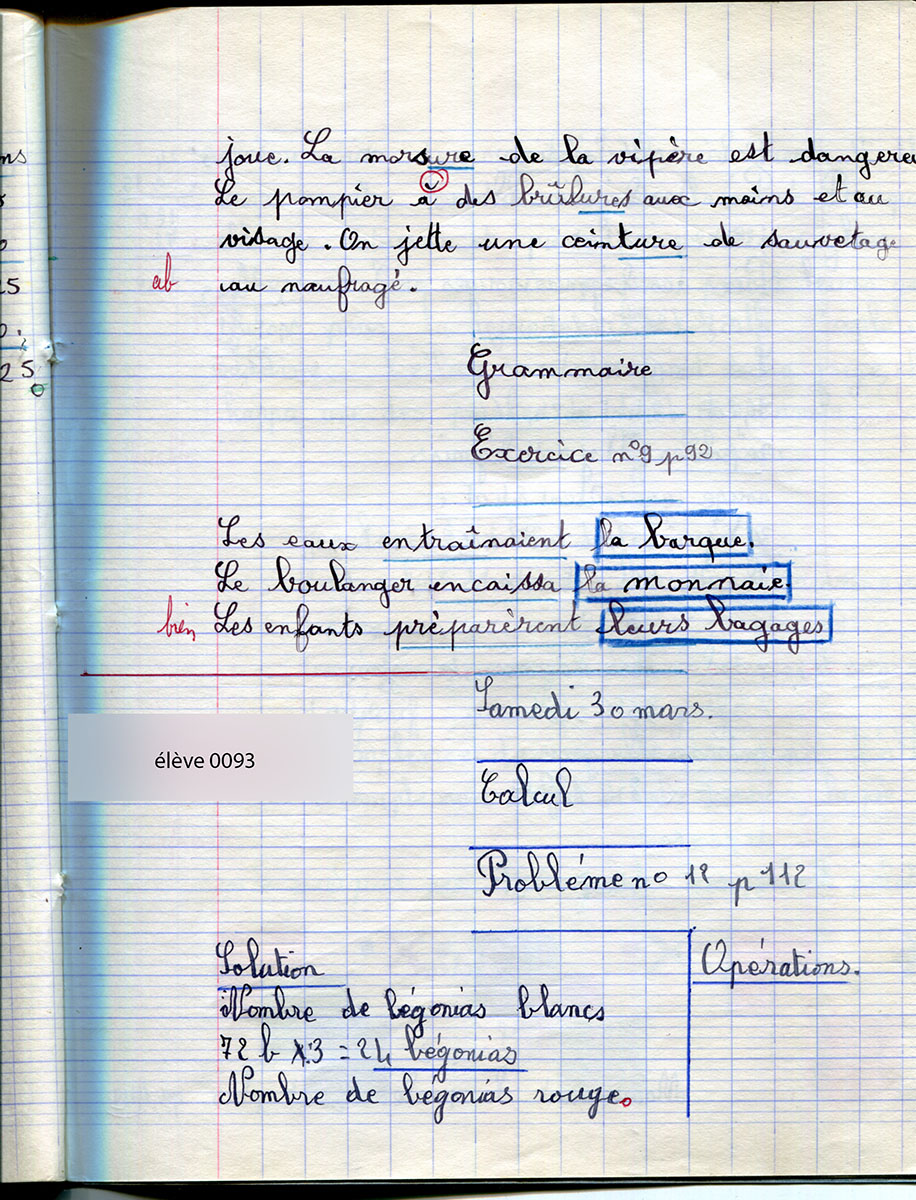 joue. La morsure de la vipère est dangereu
Le pompier à des brûlures aux mains et au
visage. On jette une ceinture de sauvetage
ab au naufragé.
Grammaire
Exercice n°9 p92
Les eaux entraînaient la barque.
Le boulanger encaissa la monnaie.
bien Les enfants préparèrent leurs bagages
Samedi 30 mars.
élève 0093
Calcul
Probléme no 12 p 112
Solution
Opérations.
Nombre de bégonias blancs
72 b : 3 = 24 bégonias
Nombre de bégonias rouge.
ns
5
25